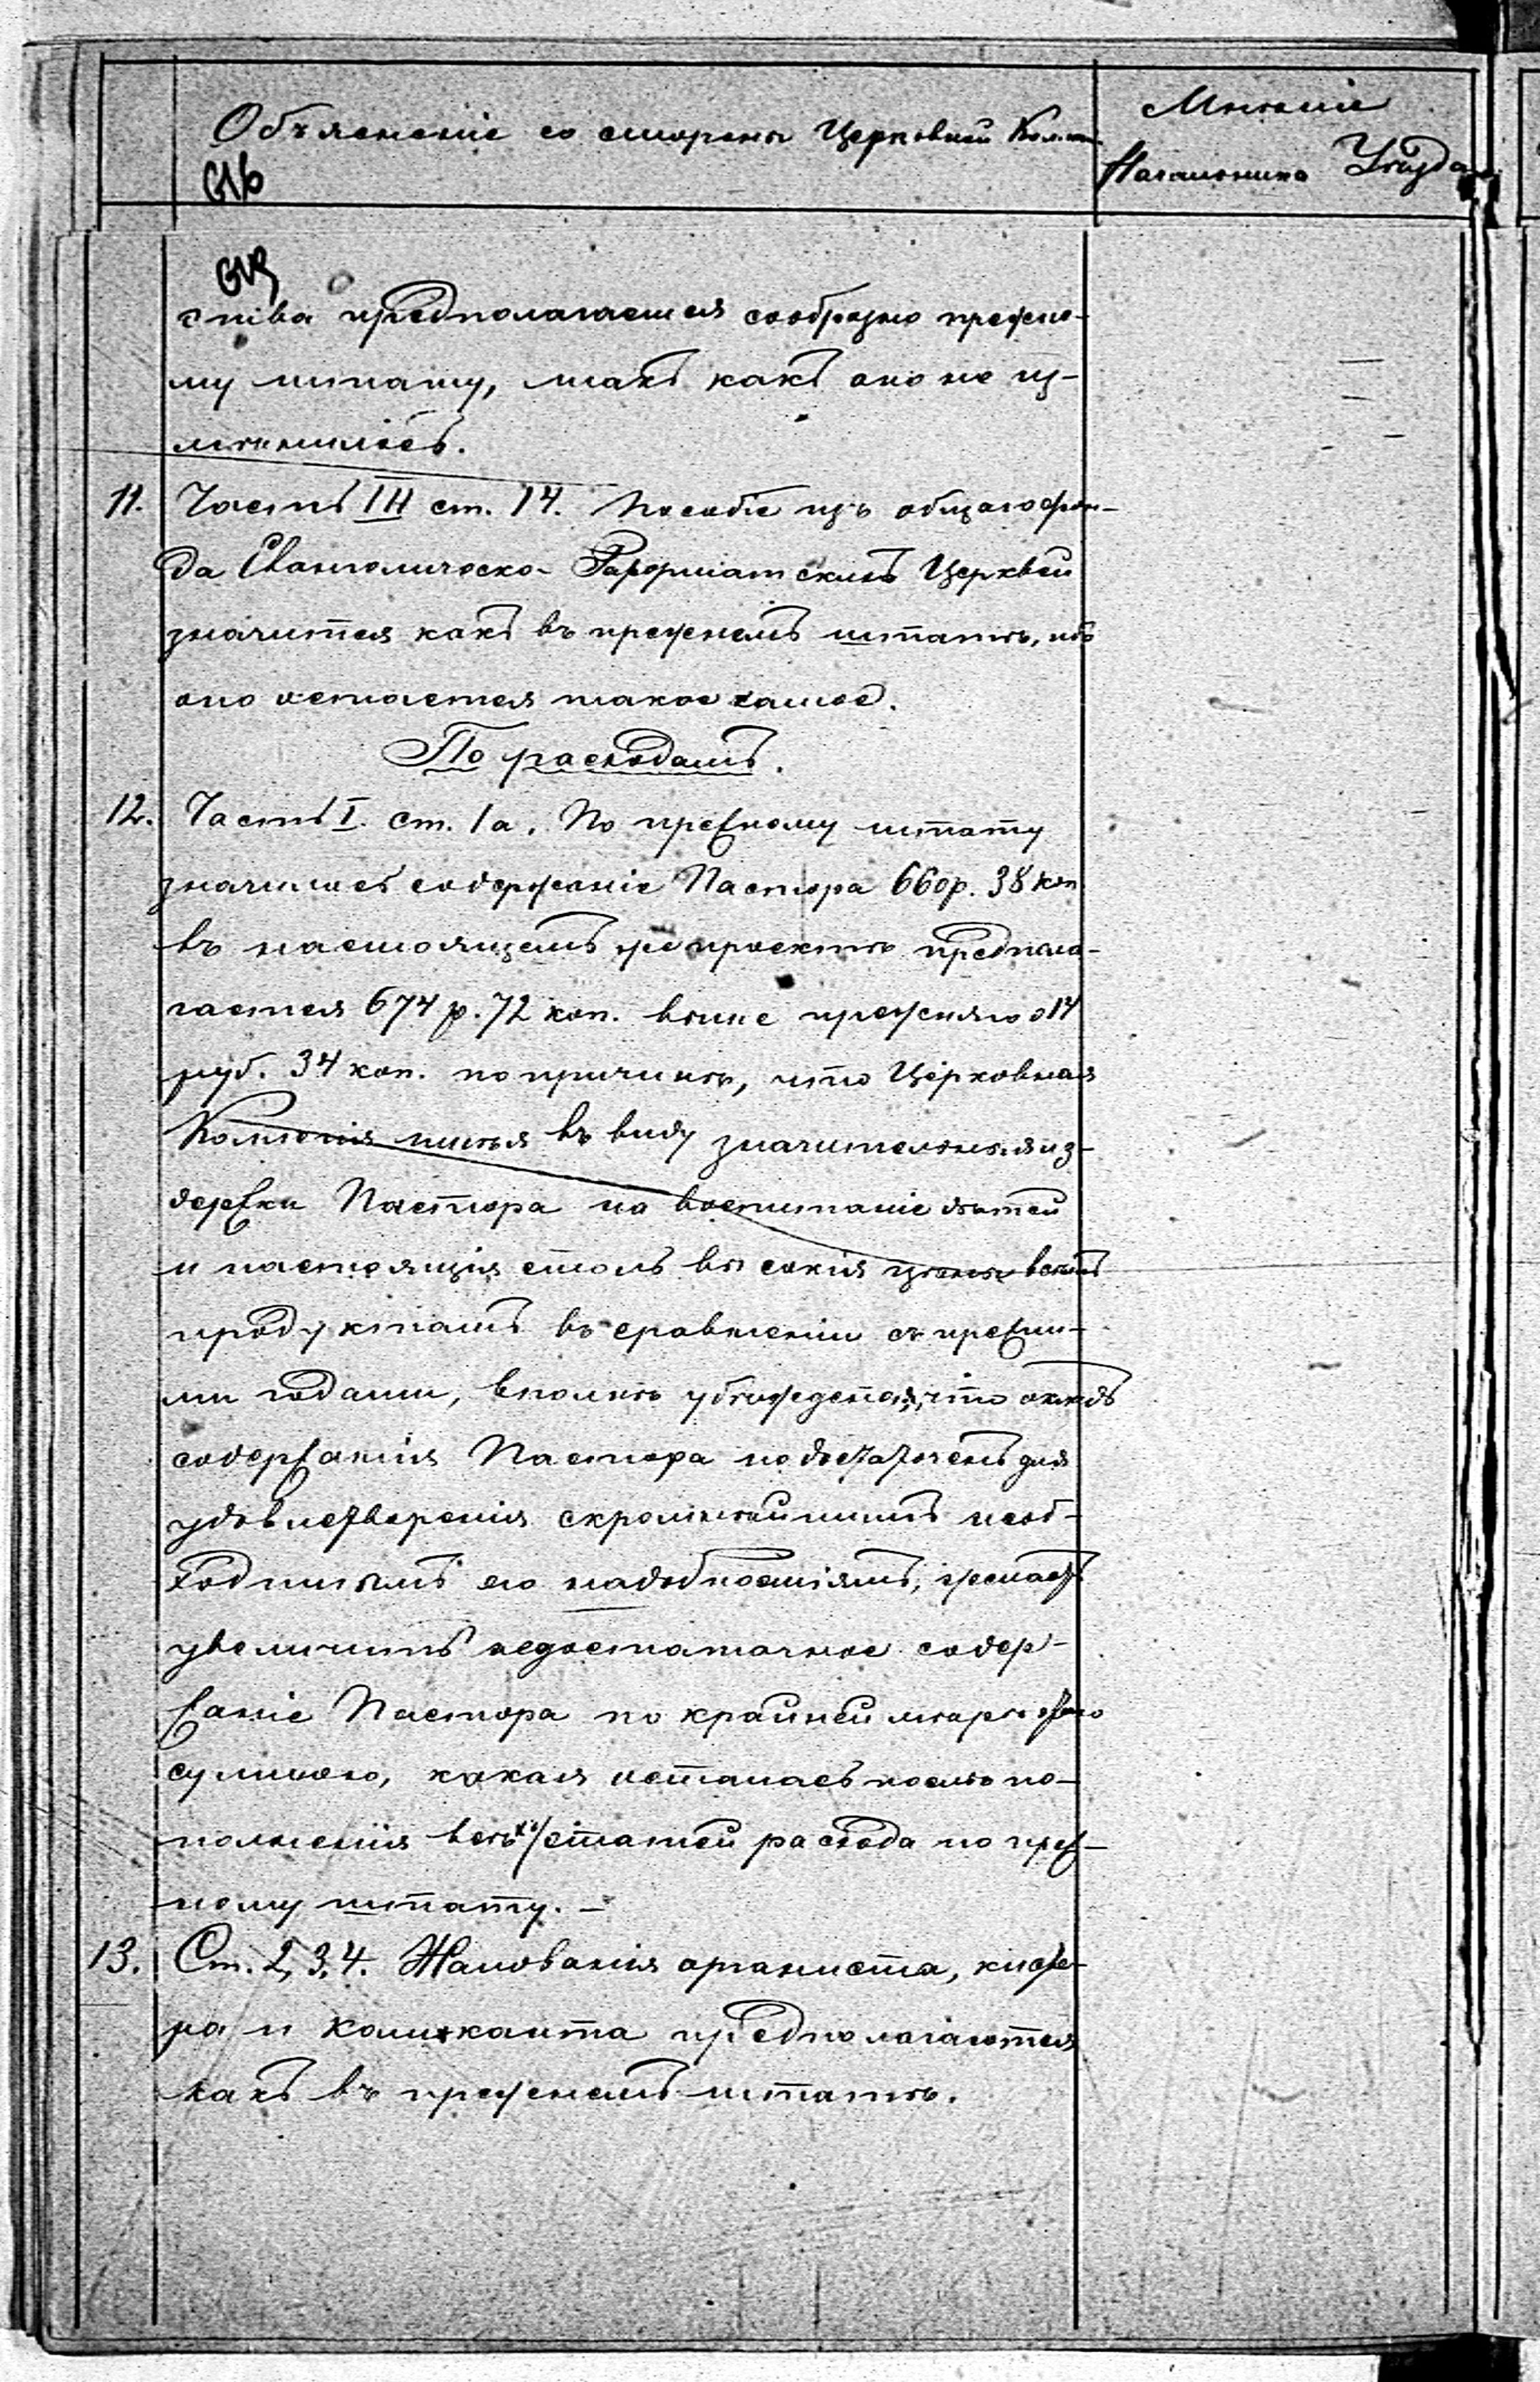 Объясненіе со стороны Церковной Колле
Мнѣніе
Начальника Уѣзда
ства предполагается сообразно прежне-
му штату, такъ какъ оно не из-
мѣнилось.
11. Часть III ст. 14. Пособіе изъ общаго фон-
да Евангелическо-Реформатскихъ Церквей
значится какъ въ прежнемъ штатѣ, ибо
оно остается такое самое.
По расходамъ.
12. Часть I. ст. 1а. По прежнему штату
значилось содержаніе Пастора 660 р. 38 коп
въ настоящемъ же проектѣ предпола-
гается 674 р. 72 коп. выше прежняго о 14
руб. 34 коп. по причинѣ, что Церковная
Коллегія имѣя въ виду значительныя из-
держки Пастора на воспитаніе дѣтей
и настоящія столь высокія цѣны всѣмъ
продуктамъ въ сравненіи съ прежни-
ми годами, вполнѣ убѣжденная, что окладъ
содержанія Пастора недостаточенъ для
удовлетворенія скромнѣйшимъ необ-
ходимымъ его надобностямъ, желаетъ
увеличить недостаточное содер-
жаніе Пастора по крайней мѣрѣ
суммою, какая осталась послѣ по-
полненія всѣхъ статей расхода по преж-
нему штату. -
13. Ст. 2, 3, 4. Жалованія органиста, кистe-
ра и кальканта предполагаются
какъ въ прежнемъ штатѣ.